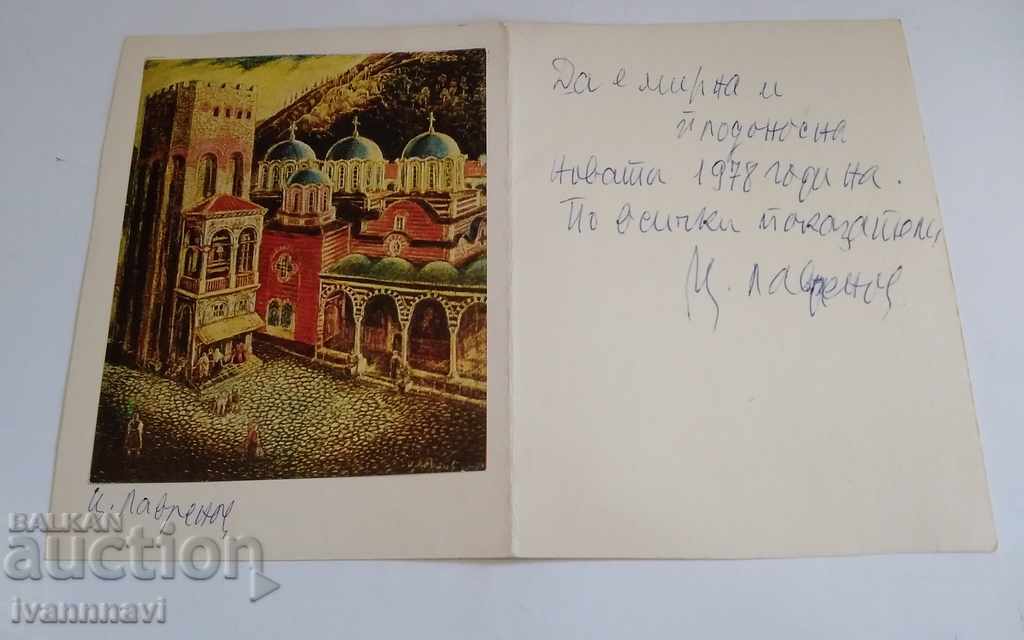 Да е мирна и
плодоносна
новата 1978 година.
По всички показатели
Ц. Лавренов
Ц. Лавренов
BALKAN
auction
ivannnavi